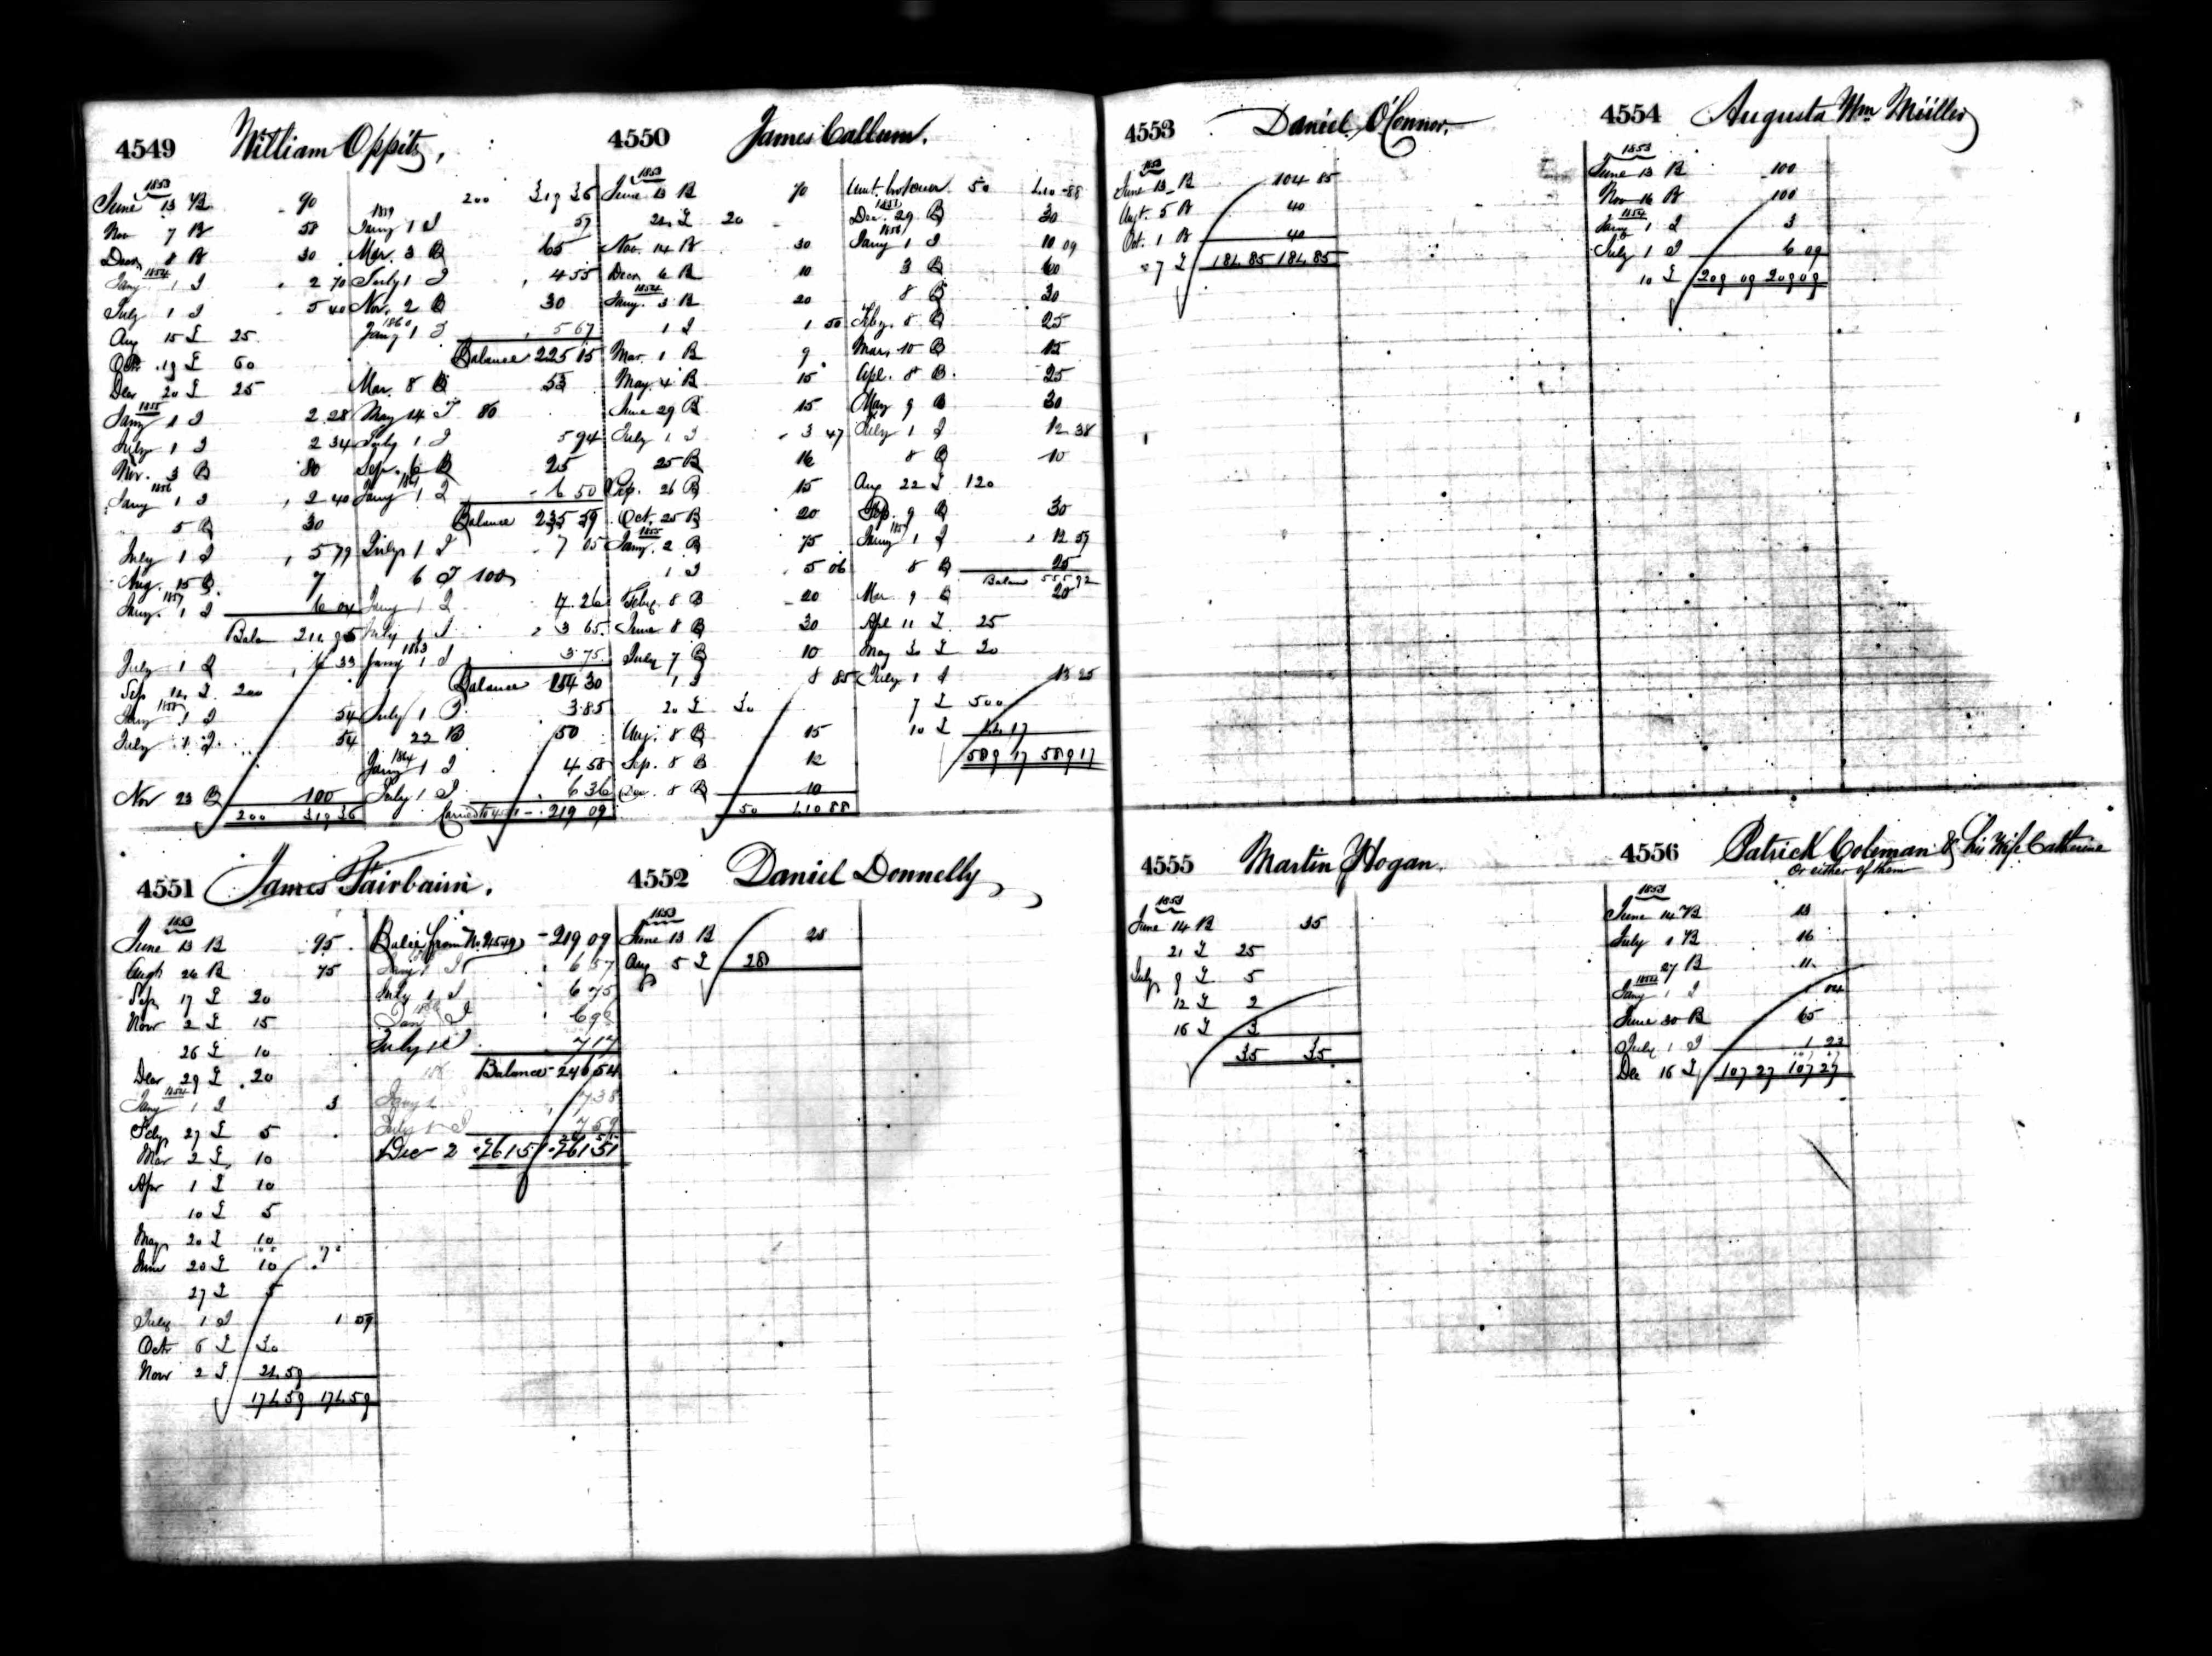 4549 William Oppitz,
1853
June 13 B 90
Nov 7 B 58
Decr 8 B 30
1854
Jany 1 I 2 70
July 1 I 5 40
Aug 15 £ 25
Octr 19 £ 60
Decr 20 £ 25
1855
Jany 1 I 2 28
July 1 I 2 34
Nov. 3 B 80
1856
Jany 1 I 2 40
5 B 30
July 1 I 5 79
Aug. 15 B 7
1857
Jany. 1 I 6 04
Balan 211 95
July 1 I 6 33
Sep 12 £ 200
1858
Jany 1 I 54
July 1 I 54
Nov 23 B 100
200 319 36
200 319 36
1859
Jany 1 I 57
Mar. 3 B 65
July 1 I 4 55
Nov. 2 B 30
1860
Jany 1 I 5 67
Balance 225 15
Mar. 8 B 53
May 14 £ 80
July 1 I 5 94
Sep. 6 B 25
1861
Jany 1 I 6 50
Balance 235 59
July 1 I 7 05
6 £ 100
Jany 1 I 4.26
July 1 I 3 65
1863
Jany 1 I 3 75
Balance 154 30
July 1 I 3.85
22 B 50
1864
Jany 1 I 4 58
July 1 I 6 36
Carried to 4551 219 09
4550 James Callum.
1853
June 13 B 70
22 £ 20
Nov. 14 B 30
Decr 6 B 10
1854
Jany. 3 B 20
1 I 1 50
Mar. 1 B 9
May. 4 B 15
June 29 B 15
July 1 I 3 47
25 B 16
Sep. 26 B 15
Oct. 25 B 20
1855
Jany. 2 B 75
1 I 5 06
Feby. 8 B 20
June 8 B 30
July 7 B 10
1 I 8 85
20 £ 30
Aug. 8 B 15
Sep. 8 B 12
Dec. 8 B 10
50 440 88
Amt. bro't over 50 440 88
1855
Dec. 29 B 30
1856
Jany 1 I 10 09
3 B 60
8 B 30
Feby. 8 B 25
Mar. 10 B 15
Apl. 8 B 25
May 9 B 30
July 1 I 12 38
8 B 10
Aug 22 £ 120
Sep. 9 B 30
1857
Jany 1 I 12 59
8 B 25
Balance 555 92
Mar 9 B 20
Apl 11 £ 25
May 30 £ 20
July 1 I 13 25
7 £ 500
10 £ 44 17
589 17 589 17
4551 James Fairbairn.
1853
June 13 B 95
Augt 26 B 75
Sep 17 £ 20
Novr 2 £ 15
26 £ 10
Decr 29 £ 20
1854
Jany 1 I 3
Feby 27 £ 5
Mar 2 £ 10
Apr 1 £ 10
10 £ 5
May 20 £ 10
June 20 £ 10
27 £ 5
July 1 I 1 59
Octr 6 £ 30
Novr 2 £ 24.59
174.59 174.59
Balce from No. 4549 219 09
Jany 1 I 6 57
July 1 I 6 75
Jan I 6 96
July 1 I 7 17
Balance 246 54
Jany 1 7 38
July 1 I 7 59
Dec 2 261 51 261 51
4552 Daniel Donnelly
1853
June 13 B 28
Aug 5 £ 28
4553 Daniel O'Connor.
1853
June 13 B 104 85
Augt. 5 B 40
Oct. 1 B 40
7 £ 184 85 184 85
4554 Augusta Wm Müller
1853
June 13 B 100
Nov 16 B 100
1854
Jany 1 I 3
July 1 I 6 09
10 £ 209 09 209 09
4555 Martin Hogan.
1853
June 14 B 35
21 £ 25
July 9 £ 5
12 £ 2
16 £ 3
35 35
4556 Patrick Coleman & his Wife Catherine
or either of them
1853
June 14 B 13
July 1 B 16
27 B 11
Jany 1 I 1 04
June 30 B 65
July 1 I 1 23
Dec 16 £ 107 27 107 27